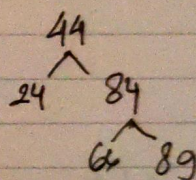 44
24 84
89